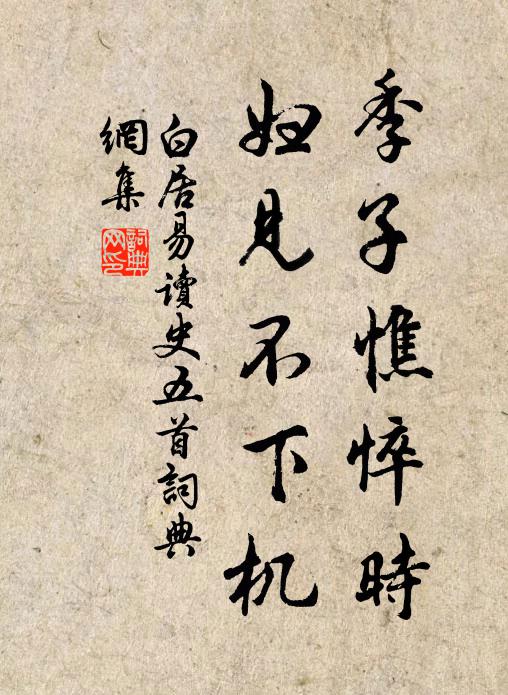 季子憔悴時
妇見不下机
白居易讀史五首詞典
網集
詞典
网印